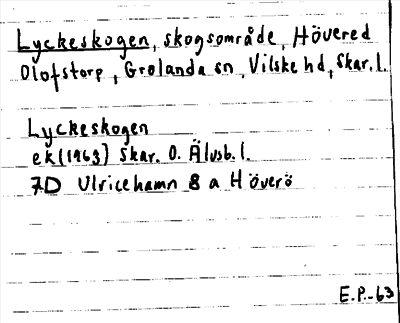 Lyckeskogen, skogsområde, Hövered
Olofstorp, Grolanda sn, Vilske hd, Skar. l.
Lyckeskogen
ek (1963) Skar. o. Älvsb. l.
7D Ulricehamn 8 a Höverö
E.P.-63